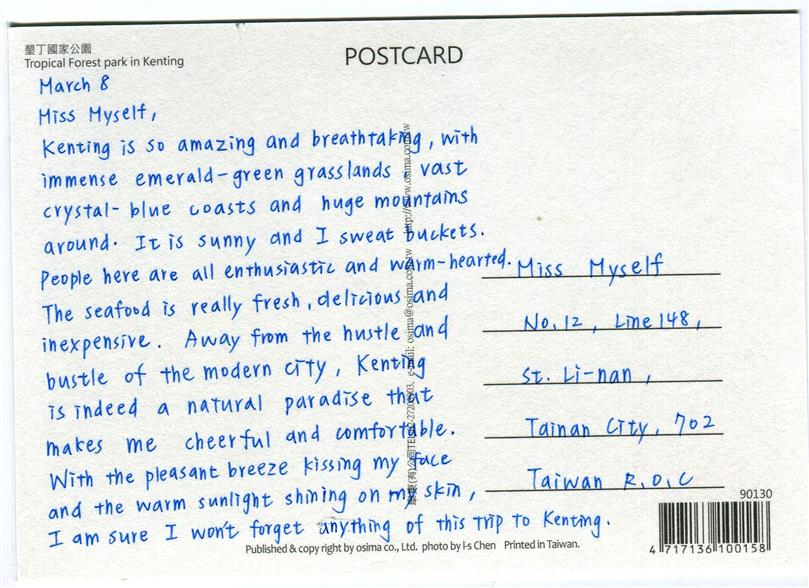 墾丁國家公園
Tropical Forest park in Kenting
POSTCARD
March 8
Miss Myself,
Kenting is so amazing and breathtaking, with
immense emerald-green grasslands, vast
crystal-blue coasts and huge mountains
around. It is sunny and I sweat buckets.
People here are all enthusiastic and warm-hearted.
The seafood is really fresh, delicious and
inexpensive. Away from the hustle and
bustle of the modern city, Kenting
is indeed a natural paradise that
makes me cheerful and comfortable.
With the pleasant breeze kissing my face
and the warm sunlight shining on my skin,
I am sure I won't forget anything of this trip to Kenting.
e-mail: osima@osima.com.tw http://www.osima.com.tw
Miss Myself
No.12, Line 148,
St. Li-nan,
Tainan City, 702
Taiwan R.O.C
90130
4 717136 100158
Published & copy right by osima co., Ltd. photo by I-s Chen Printed in Taiwan.